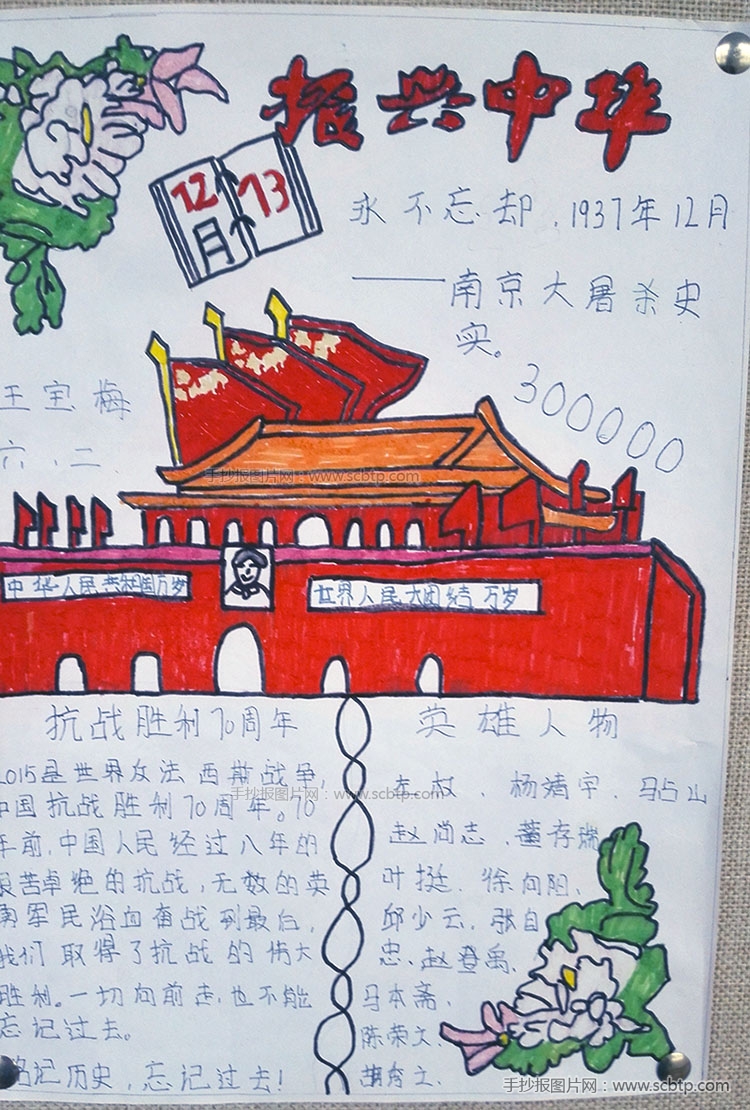 振兴中华
12月13
永不忘却.1937年12月
——南京大屠杀史
实。
300000
王宝梅
六.二
手抄报图片网：www.scbtp.com
中华人民共和国万岁
世界人民大团结万岁
抗战胜利70周年
2015是世界反法西斯战争,
中国抗战胜利70周年。70
年前,中国人民经过八年的
艰苦卓绝的抗战,无数的英
勇军民浴血奋战到最后,
我们取得了抗战的伟大
胜利。一切向前走,也不能
忘记过去。
铭记历史,忘记过去!
英雄人物
左权、杨靖宇、马占山
手抄报图片网：www.scbtp.com
赵尚志、董存瑞
叶挺、徐向阳、
邱少云、张自
忠、赵登禹、
马本斋、
陈荣文、
手抄报图片网：www.scbtp.com